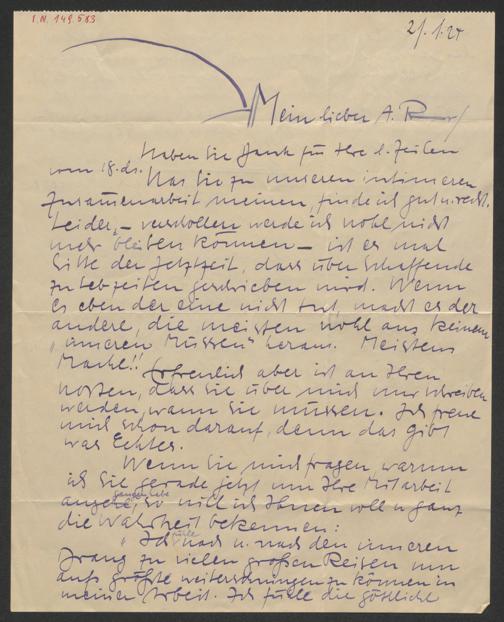 I.N. 149.583
21.1.27
Mein lieber A. R
Haben Sie Dank für Ihre l. Zeilen
vom 18. ds. Was Sie zu unseren intimeren
Zusammenarbeit meinen, finde ich gut u. recht.
Leider, – verschollen werde ich wohl nicht
mehr bleiben können – ist es mal
Sitte der Jetztzeit, dass über Schaffende
zu Lebzeiten geschrieben wird. Wenn
es eben der eine nicht tut, macht es der
andere, die meisten wohl aus keinem
„inneren Müssen" heraus. Meistens
Mache!! Erfreulich aber ist an Ihren
Worten, dass Sie über mich nur schreiben
werden, wann Sie müssen. Ich freue
mich schon darauf, denn das gibt
was Echtes.
Wenn Sie mich fragen, warum
ich Sie gerade jetzt um Ihre Mitarbeit
habe, so will ich Ihnen voll u. ganz
die Wahrheit bekennen:
„Ich fühle nach u. nach den inneren
Drang zu vielen großen Reisen um
aufs größte weiterschwingen zu können in
meiner Arbeit. Ich fühle die göttliche